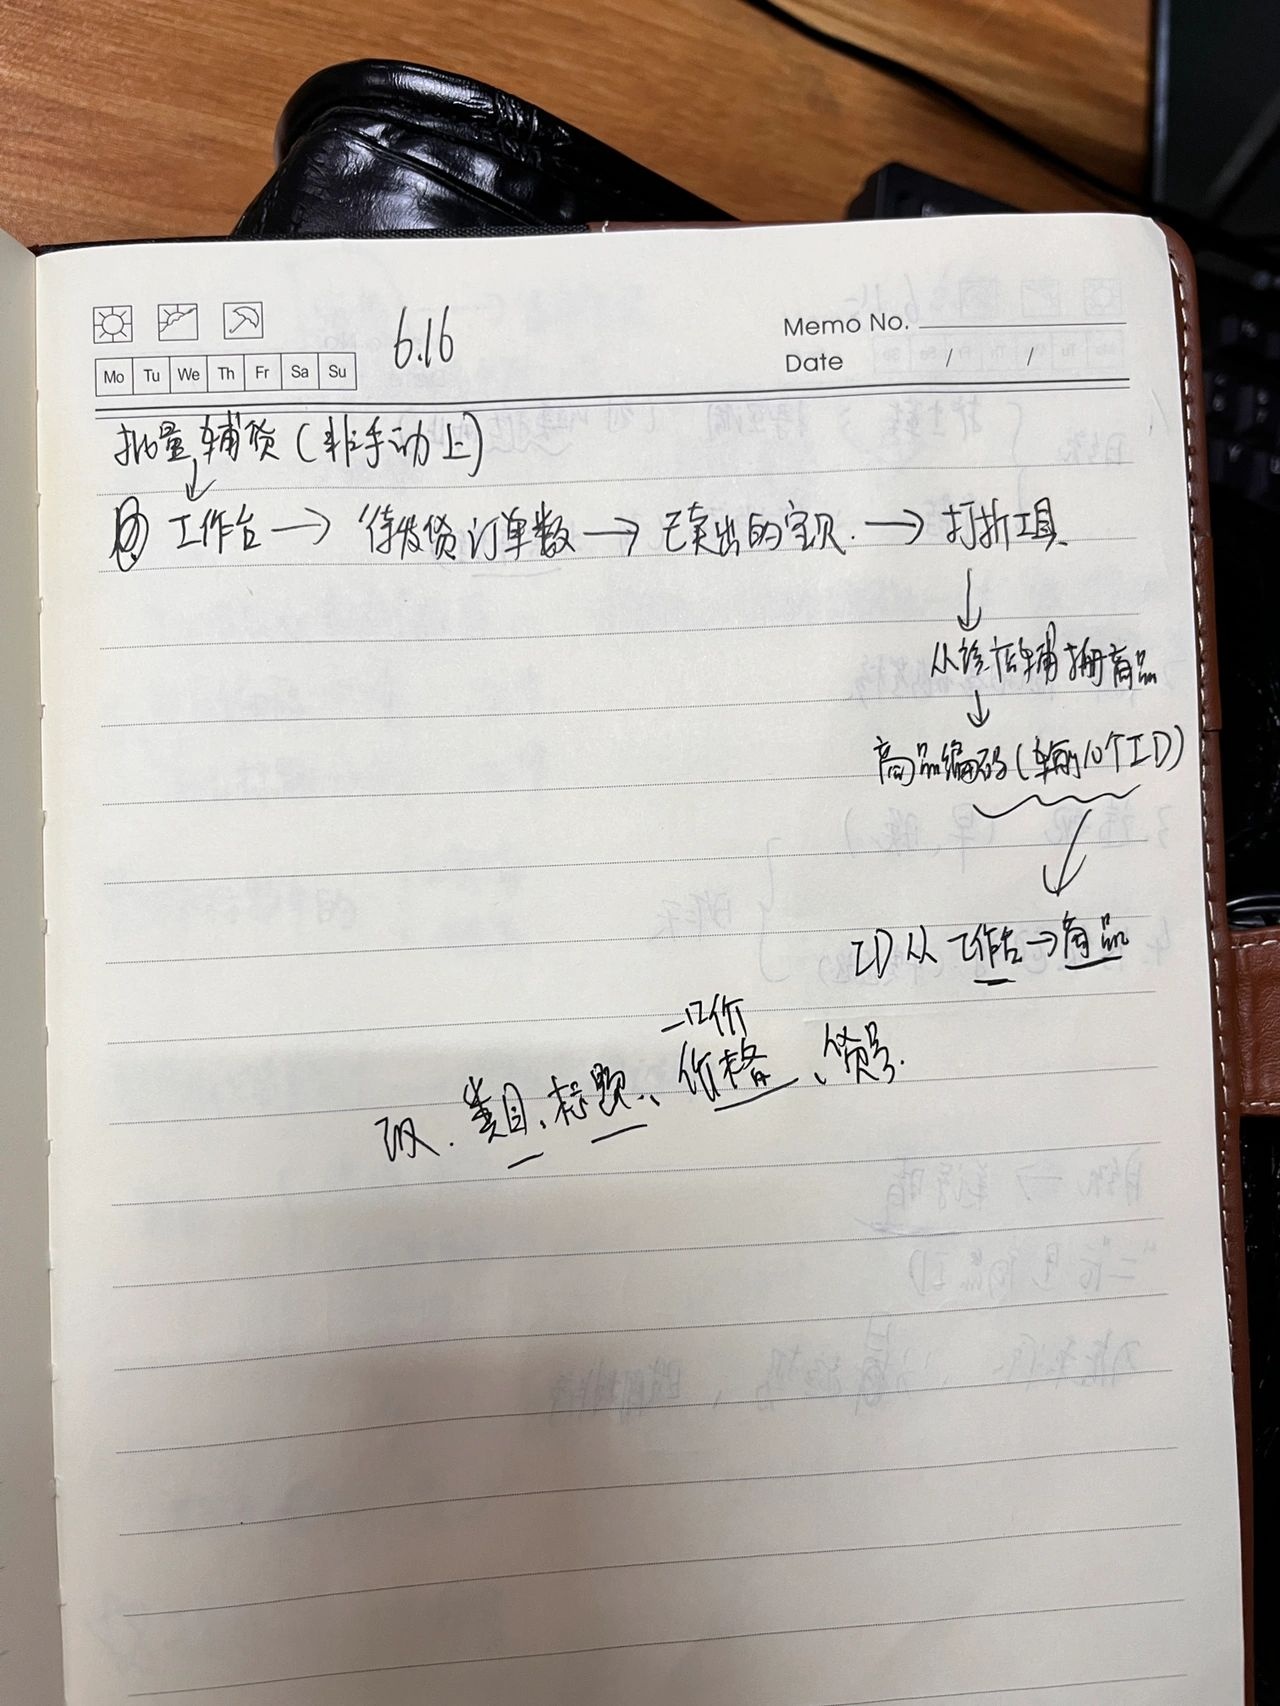 6.16
Memo No.
Mo Tu We Th Fr Sa Su
Date / /
批量辅货(非手动上)
↓
工作台→待发货订单数→已卖出的宝贝.→打折工具.
↓
从该店辅商品
↓
商品编码(输10个ID)
ID从工作台→商品
一口价
类目、标题、价格、货号.